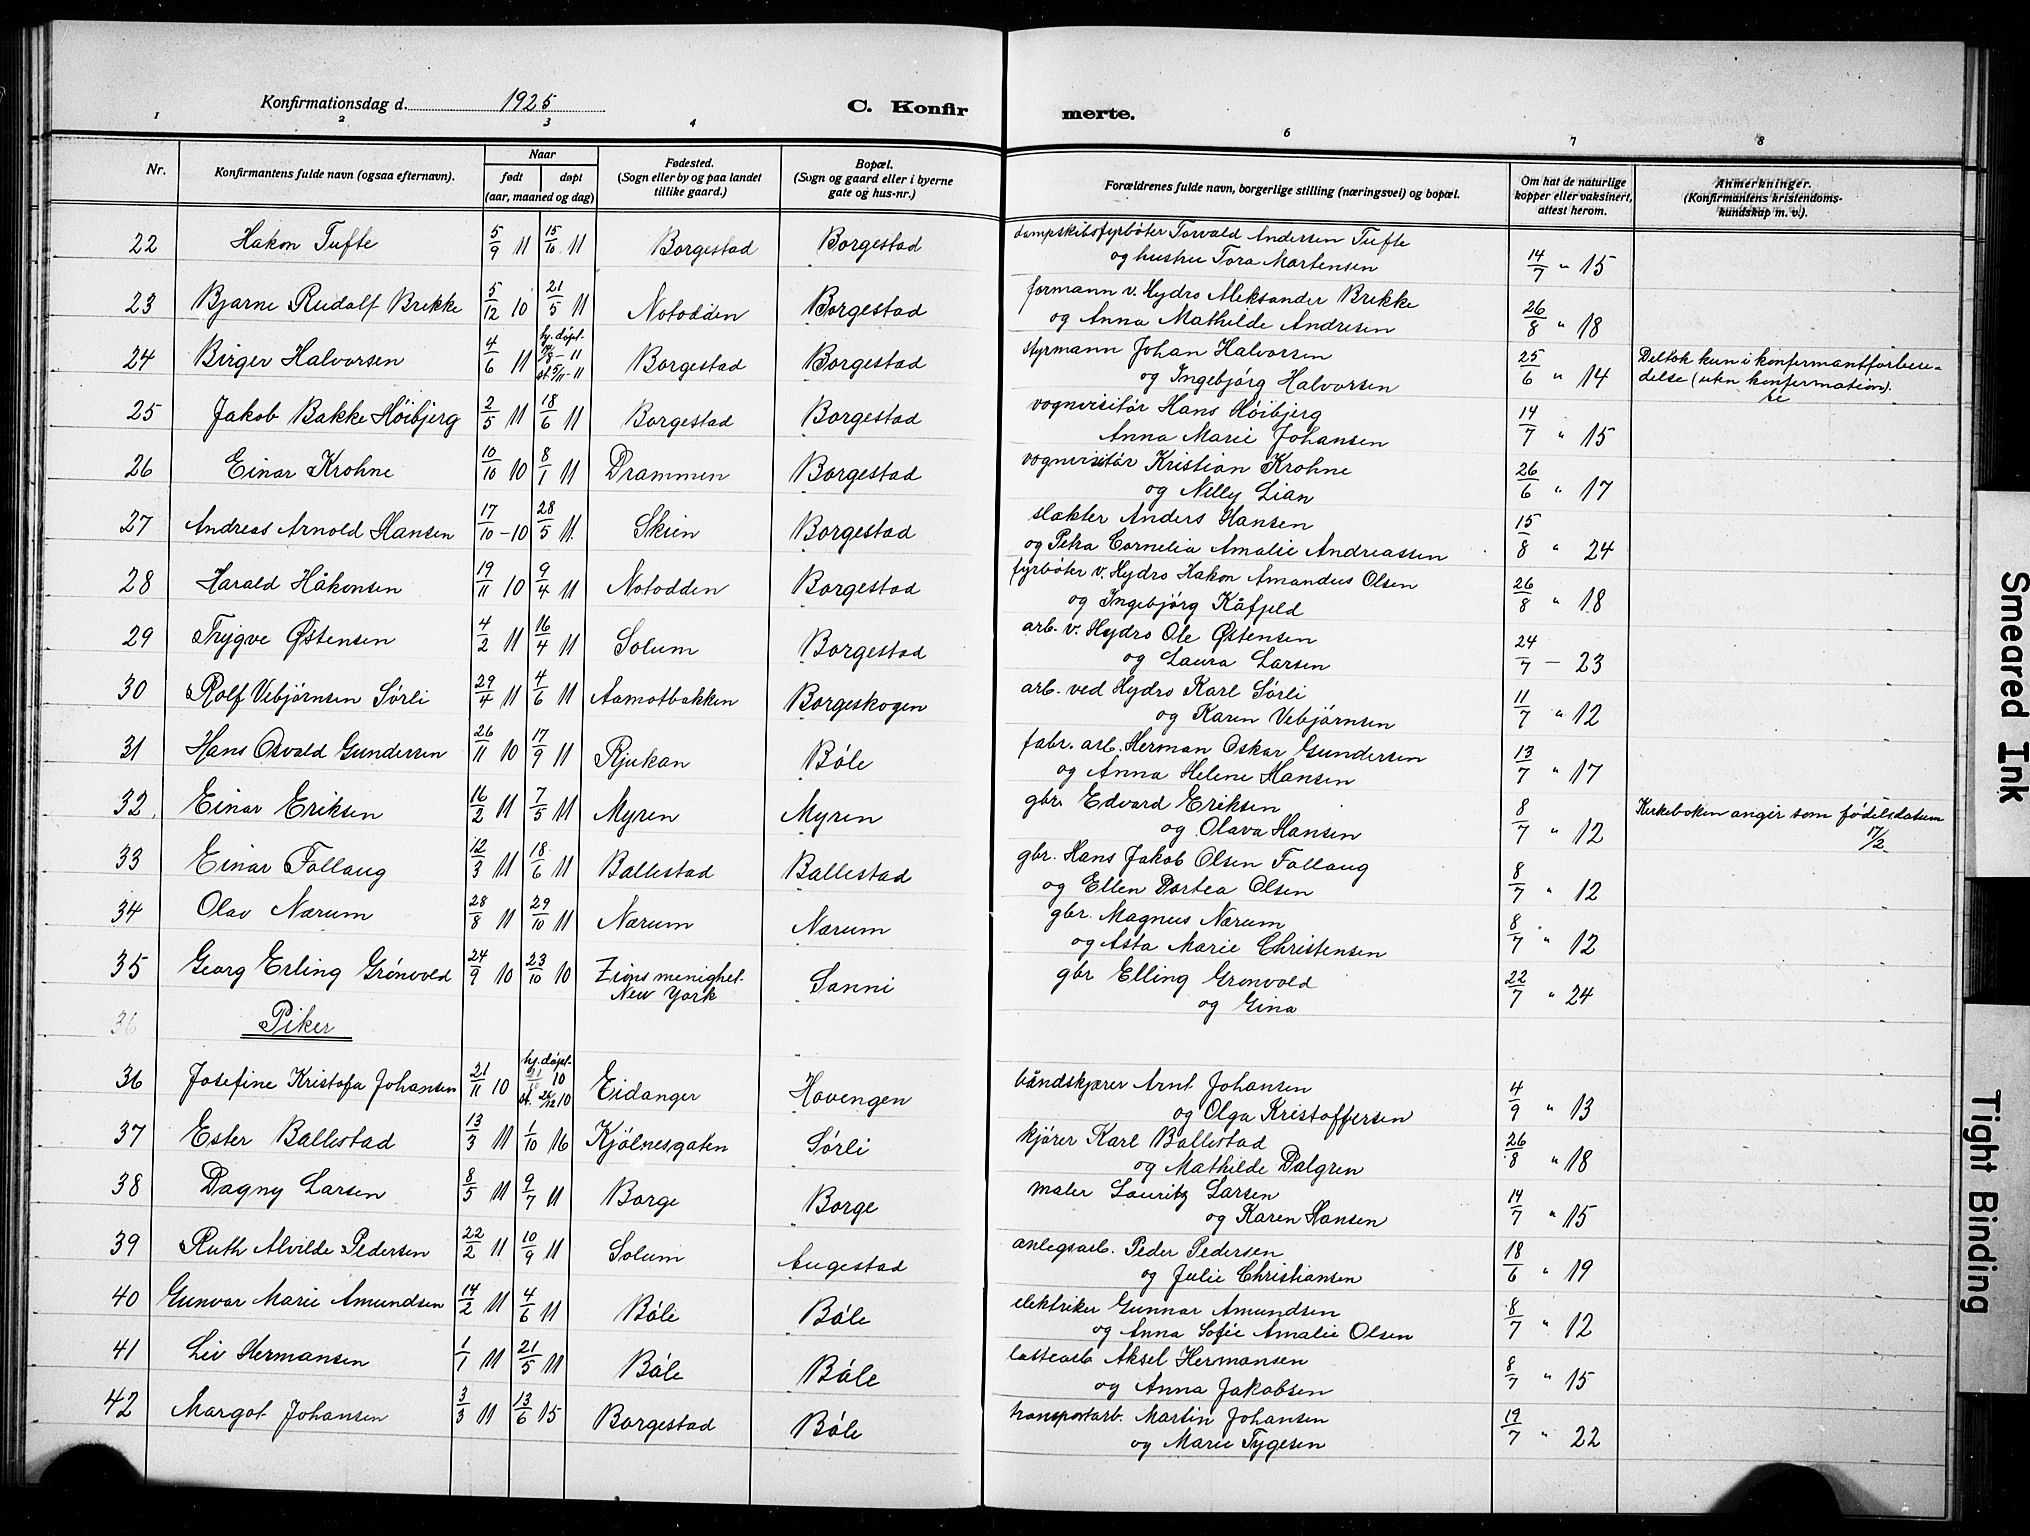 Konfirmationsdag d. 1925
C. Konfir
merte.
1 2 3 4 6 7 8
Nr. Konfirmantens fulde navn (ogsaa efternavn). Naar født døpt (aar, maaned og dag) Fødested. (Sogn eller by og paa landet tillike gaard.) Bopæl. (Sogn og gaard eller i byerne gate og hus-nr.) Forældrenes fulde navn, borgerlige stilling (næringsvei) og bopæl. Om hat de naturlige kopper eller vaksinert, attest herom. Anmerkninger. (Konfirmantens kristendoms-kundskap m. v.).
22 Hakon Tufte 5/9 11 15/10 11 Borgestad Borgestad dampskibsfyrbøter Torvald Andersen Tufte
og hustru Tora Martensen 14/7 " 15
23 Bjarne Rudolf Brekke 5/12 10 21/5 11 Notodden Borgestad formann v. Hydro Aleksander Brekke
og Anna Mathilde Andresen 26/8 " 18
24 Birger Halvorsen 4/6 11 hj. døpt /8 - 11 st. 5/11 - 11 Borgestad Borgestad styrmann Johan Halvorsen
og Ingebjørg Halvorsen 25/6 " 14 Deltok kun i konfirmantforbere-
delse (uten konfirmation).
25 Jakob Bakke Høibjerg 2/5 11 18/6 11 Borgestad Borgestad vognvisitør Hans Høibjerg
Anna Marie Johansen 14/7 " 15
26 Einar Krohne 10/10 10 8/1 11 Drammen Borgestad vognvisitør Kristian Krohne
og Nelly Lian 26/6 " 17
27 Andreas Arnold Hansen 17/10 - 10 28/5 11. Skien Borgestad slakter Anders Hansen
og Petra Cornelia Amalie Andreassen 15/8 " 24
28 Harald Håkonsen 19/11 10 9/4 11 Notodden Borgestad fyrbøter v. Hydro Hakon Amandus Olsen
og Ingebjørg Kåfjeld 26/8 " 18
29 Trygve Østensen 4/2 11 16/4 11 Solum Borgestad arb. v. Hydro Ole Østensen
og Laura Larsen 24/7 - 23
30 Rolf Vebjørnsen Sørli 29/4 11 4/6 11 Aamotbakken Borgeskogen arb. ved Hydro Karl Sørli
og Karen Vebjørnsen 11/7 " 12
31 Hans Osvald Gundersen 26/11 10 17/9 11 Rjukan Bøle fabr. arb. Herman Oskar Gundersen
og Anna Helene Hansen 13/7 " 17
32. Einar Eriksen 16/2 11 7/5 11 Myren Myren gbr. Edvard Eriksen
og Olava Hansen 8/7 " 12 Kirkeboken angir som fødselsdatum
17/2.
33 Einar Follaug 12/3 11 18/6 11 Ballestad Ballestad gbr. Hans Jakob Olsen Follaug
og Ellen Dortea Olsen 8/7 " 12
34 Olav Nærum 28/8 11 29/10 11 Nærum Nærum gbr. Magnus Nærum
og Asta Marie Christensen 8/7 " 12
35 Georg Erling Grønvold 24/9 10 23/10 10 Zions menighet. New York Sanni gbr Elling Grønvold
og Gina 22/7 " 24
36 Piker
36 Josefine Kristofa Johansen 21/11 10 hj. døpt 21/ 10 st. 26/12 10 Eidanger Hovengen båndskjærer Arnt Johansen
og Olga Kristoffersen 4/9 " 13
37 Ester Ballestad 13/3 11 1/10 16 Kjølnesgaten Sørli kjører Karl Ballestad
og Mathilde Dalgren 26/8 " 18
38 Dagny Larsen 8/5 11 9/7 11 Borge Borge maler Lauritz Larsen
og Karen Hansen 14/7 " 15
39 Ruth Alvilde Pedersen 22/2 11 10/9 11 Solum Augestad anlegsarb. Peder Pedersen
og Julie Christiansen 18/6 " 19
40 Gunvor Marie Amundsen 14/2 11 4/6 11 Bøle Bøle elektriker Gunnar Amundsen
og Anna Sofie Amalie Olsen 8/7 " 12
41 Liv Hermansen 1/1 11 21/5 11 Bøle Bøle lastearb Aksel Hermansen
og Anna Jakobsen 8/7 " 15
42 Margot Johansen 3/3 11 13/6 15 Borgestad Bøle transportarb. Martin Johansen
og Marie Tygesen 19/7 " 22
Smeared Ink
Tight Binding